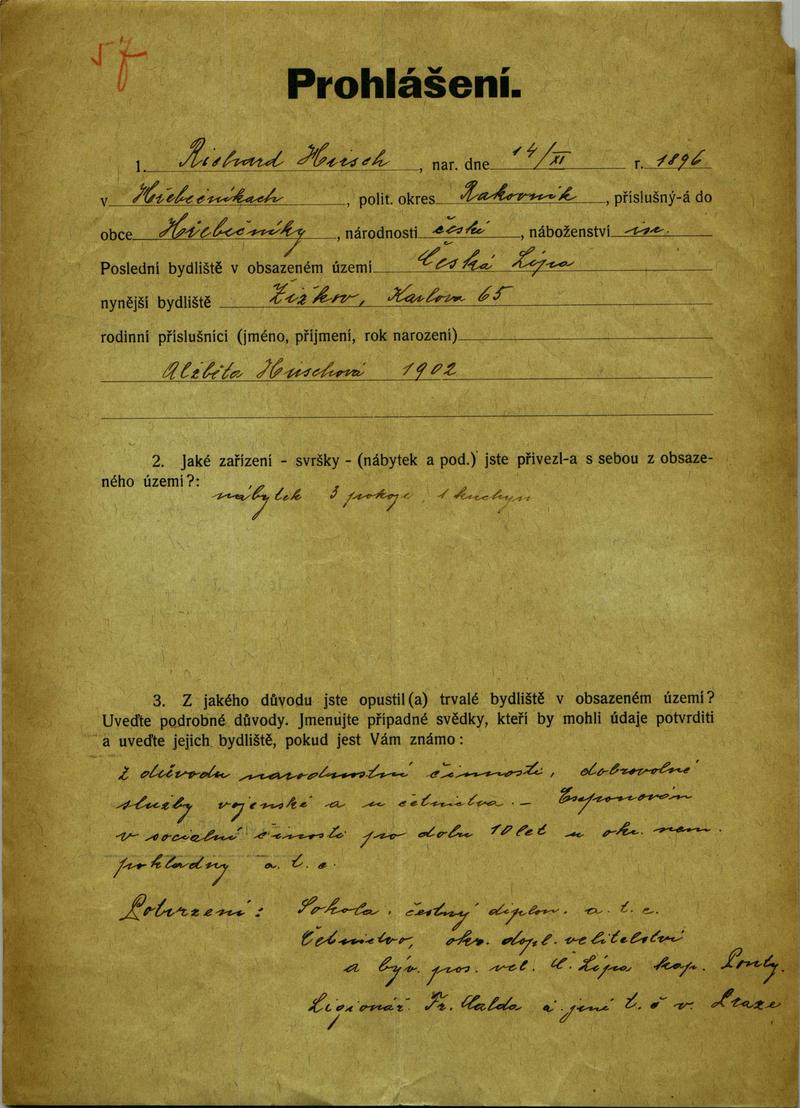 57
Prohlášení.
1. Richard Hirsch, nar. dne 14/XI r. 1896
v Hřebečníkach, polit. okres Rakovník, příslušný-á do
obce Hřebečníky, národnosti české, náboženství
Poslední bydliště v obsazeném území Česká Lípa
nynější bydliště Žižkov, Karlova 65
rodinní příslušníci (jméno, příjmení, rok narození)
Alžběta Hirschová 1902
2. Jaké zařízení - svršky - (nábytek a pod.) jste přivezl-a s sebou z obsaze-
ného území?:
nábytek 3 pokoje, 1 kuchyn
3. Z jakého důvodu jste opustil(a) trvalé bydliště v obsazeném území?
Uveďte podrobné důvody. Jmenujte případné svědky, kteří by mohli údaje potvrditi
a uveďte jejich bydliště, pokud jest Vám známo:
Z důvodu narodnostní činnosti, dobrovolné
služby vojenské a u četnictva. - Exponován
v sociální činosti po dobu 10 let u okr. nem.
pokladny a. t. d.
Potvrzení: Sokola, čestný diplom. a. t. d.
Četnictvo, okr. dopl. velitelství
a býv. pos. vel. Č. Lípa kap. Pouty.
Legionář Fr. Halda a jiní t. č v. Praze